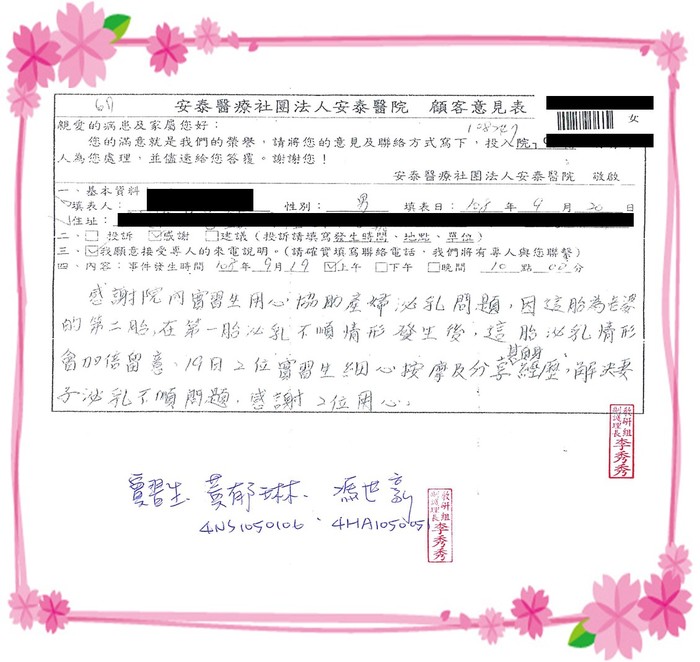 6A
安泰醫療社團法人安泰醫院 顧客意見表
女
親愛的病患及家屬您好：
您的滿意就是我們的榮譽，請將您的意見及聯絡方式寫下，投入院
人為您處理，並儘速給您答覆。謝謝您！
安泰醫療社團法人安泰醫院 敬啟
一、基本資料
填表人： 性別： 男 填表日：108 年 9 月 20 日
住址：
二、□ 投訴 ☑感謝 □建議 (投訴請填寫發生時間、地點、單位)
三、☑我願意接受專人的來電說明。(請確實填寫聯絡電話，我們將有專人與您聯繫)
四、內容：事件發生時間 108年9月19 ☑上午 □下午 □晚間 10 點 00分
感謝院內實習生用心協助產婦泌乳問題，因這胎為老婆
的第二胎，在第一胎泌乳不順情形發生後，這胎泌乳情形
會加倍留意、19日2位實習生細心按摩及分享其自身經歷，解決妻
子泌乳不順問題，感謝2位用心。
教研組
副護理長
李秀秀
實習生 黃郁琳、馮世
4NS1050106、4HA105005
教研組
副護理長
李秀秀